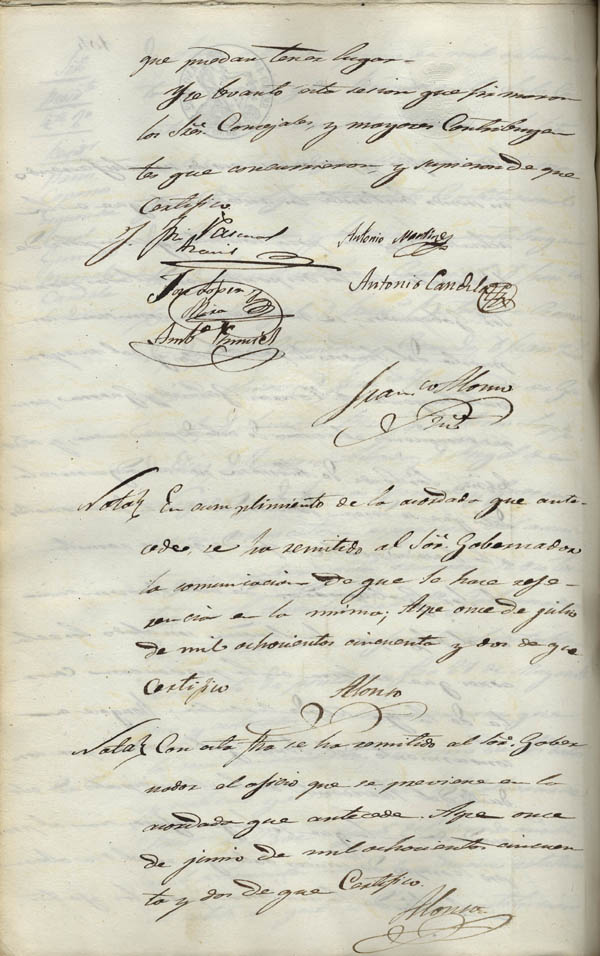 que puedan tener lugar.
Y se levantó esta sesion que firmaron
los Sres. Concejales, y mayores Contribuyen
tes que concurrieron, y supieron de que
Certifico.
Pascual
Antonio Martinez
Antonio Candela
Jose Lopez y
Amb.o
Fran.co Alonso
Srio
Nota En cumplimiento de lo acordado que ante-
cede, se ha remitido al Sor. Gobernador
la comunicacion de que se hace refe-
rencia en la misma; Aspe once de julio
de mil ochocientos cincuenta y dos de que
Certifico Alonso
Nota Con esta fha se ha remitido al Sor. Gober-
nador el oficio que se previene en lo
acordado que antecede. Aspe once
de junio de mil ochocientos cincuen
ta y dos de que Certifico.
Alonso